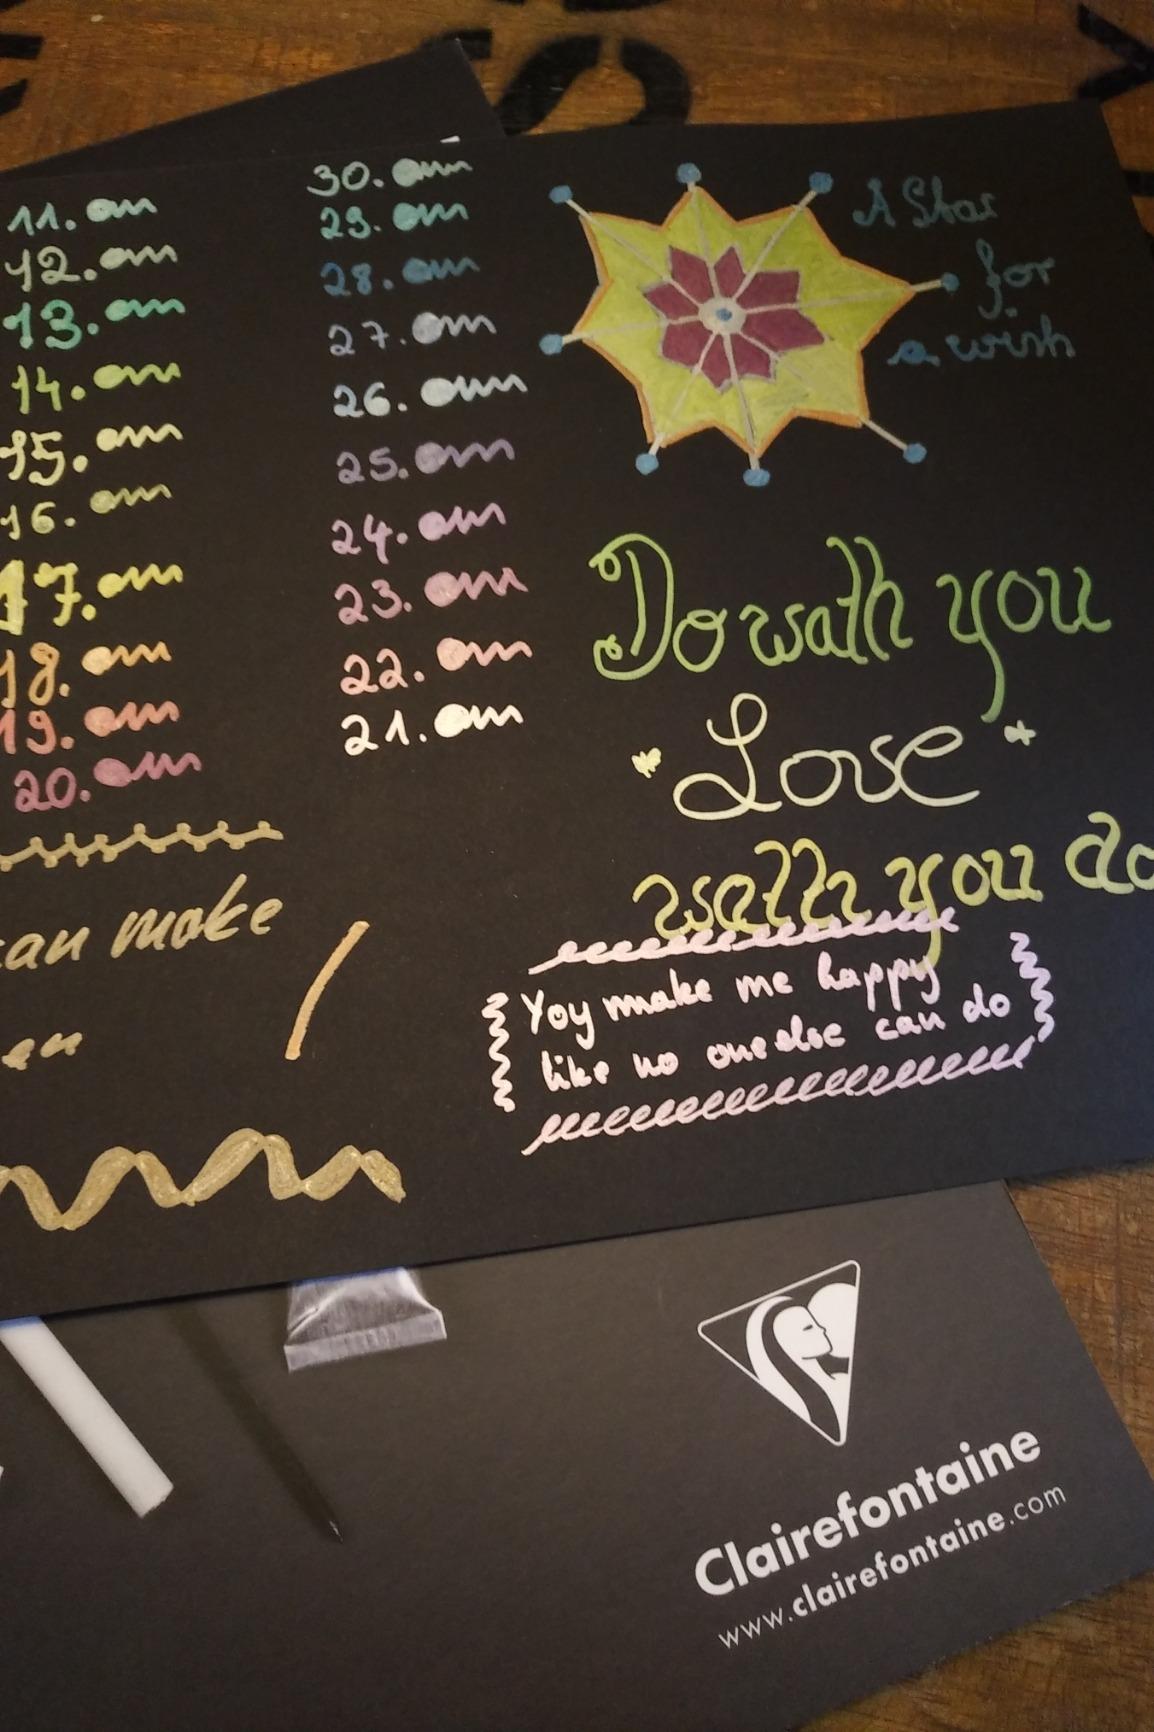 11.
12.
13.
14.
15.
16.
17.
18.
19.
20.
30.
29.
28.
27.
26.
25.
24.
23.
22.
21.
can make
en
A Star
for
a wish
Do wath you
Love
wath you do
Yoy make me happy
like no one else can do
Clairefontaine
www.clairefontaine.com